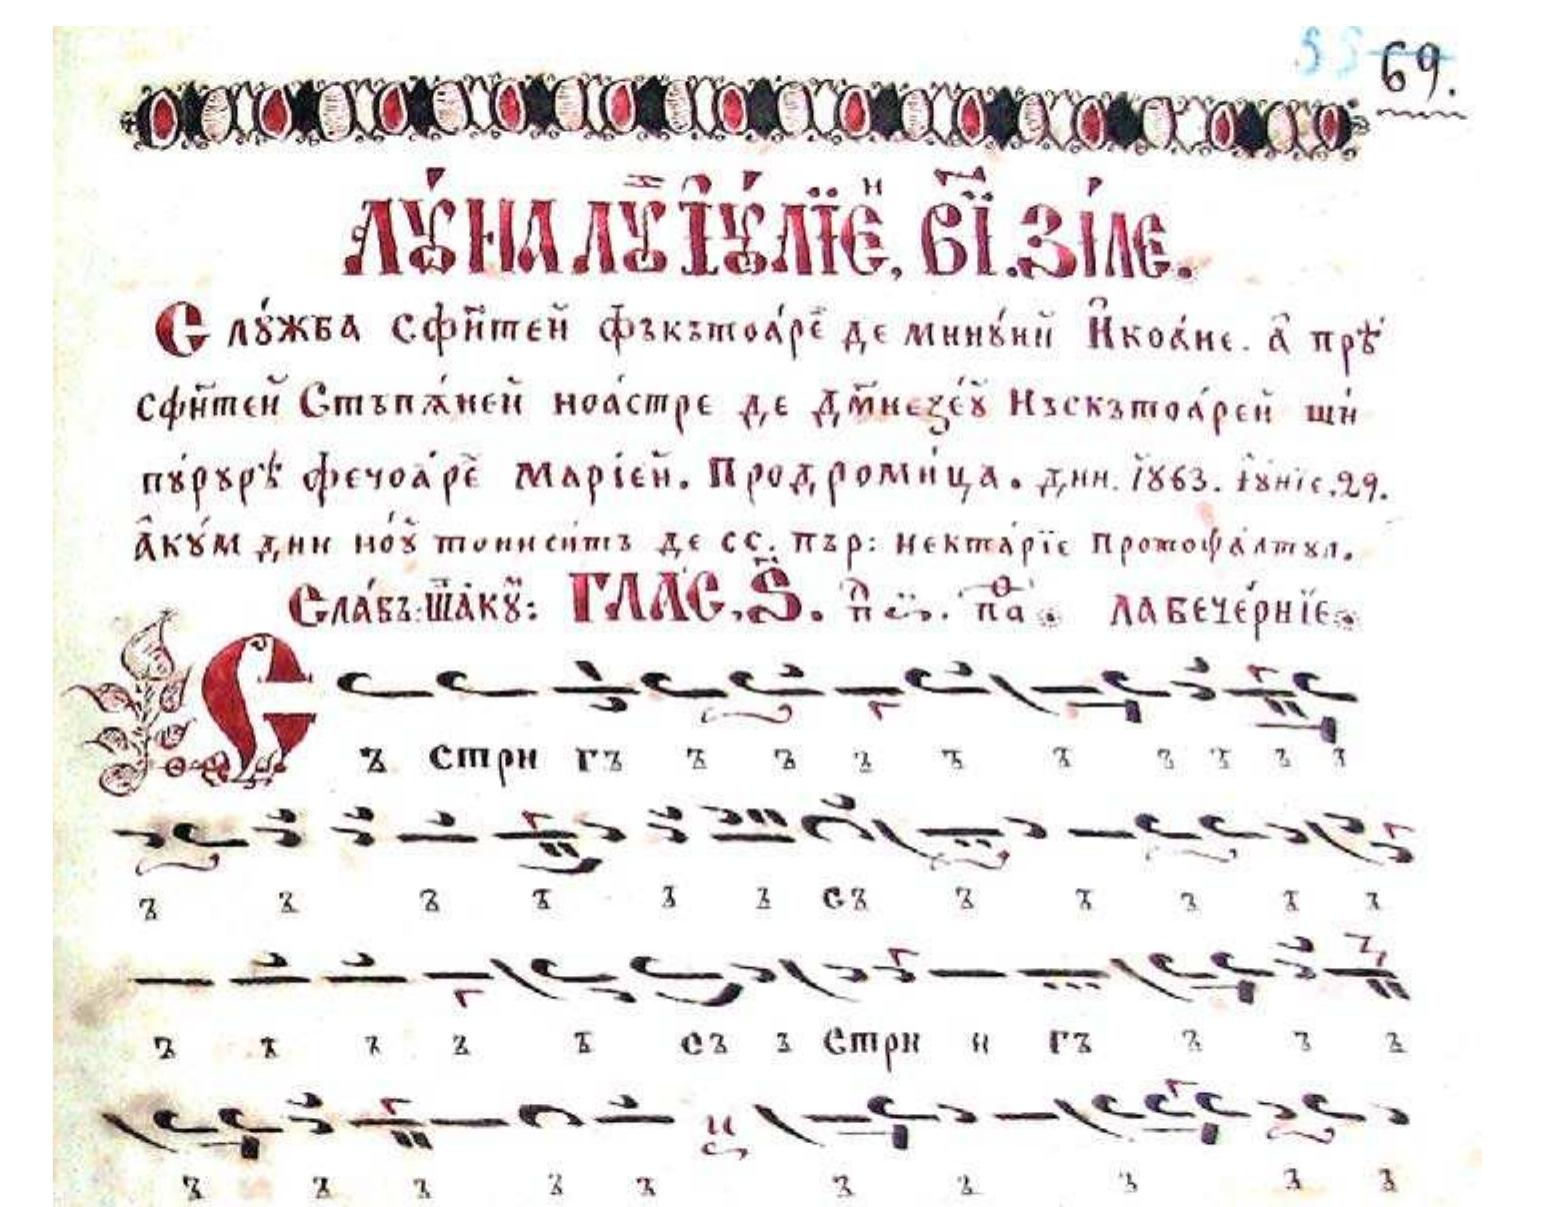 69.
ЛꙊ́НА ЛꙊЙ ІꙊ́ЛЇЕ, В҃Ї. ЗІ́ЛЕ.
Слꙋ́жба сфи̃тей фъкътоа́рӗ де минꙋ́ний И҆коа́не. а҆ прѣ
сфи̃тей Стъпѫ́ней ноа́стре де Дм̃незе́ꙋ Нъскътоа́рей шѝ
пꙋ́рꙋрѣ фечоа́рӗ Марі́ей. Продроми́ца. дин. 1863. І҆ꙋ́нїе. 29.
А҆кꙋ́м дин но́ꙋ тониси́тъ де сс. пър: Некта́рїе Протоѱа́лтꙋл.
Сла́въ: ш̃ акꙋ̃: ГЛАС. Ѕ҃. па ла вече́рнїе
Съ стри гъ ъ ъ ъ ъ ъ ъ ъ ъ ъ
ъ ъ ъ ъ ъ ъ съ ъ ъ ъ ъ ъ
ъ ъ ъ ъ ъ съ ъ стри и гъ ъ ъ ъ
ъ ъ ъ ъ ъ ъ ъ ъ ъ ъ